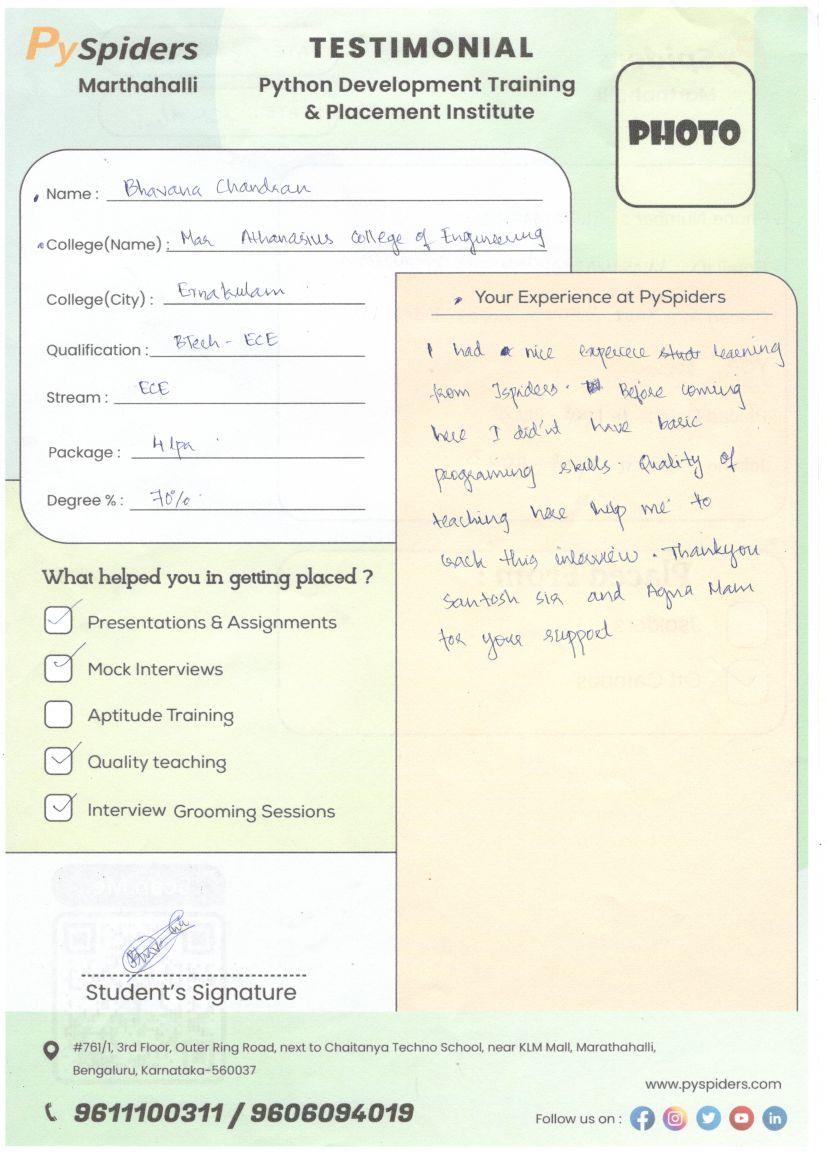 PySpiders
Marthahalli
TESTIMONIAL
Python Development Training
& Placement Institute
PHOTO
Name : Bhavana Chandran
College(Name) : Mar Athanasius College of Engineering
College(City) : Ernakulam
Qualification : BTech - ECE
Stream : ECE
Package : 4 lpa
Degree % : 70%
Your Experience at PySpiders
I had a nice experece learning
from Jspiders. Before coming
here I did'nt have basic
programing skills. Quality of
teaching here help me to
crack this interview. Thankyou
Santosh sir and Mam
for your support
What helped you in getting placed ?
Presentations & Assignments
Mock Interviews
Aptitude Training
Quality teaching
Interview Grooming Sessions
Student's Signature
#761/1, 3rd Floor, Outer Ring Road, next to Chaitanya Techno School, near KLM Mall, Marathahalli,
Bengaluru, Karnataka-560037
9611100311 / 9606094019
www.pyspiders.com
Follow us on :